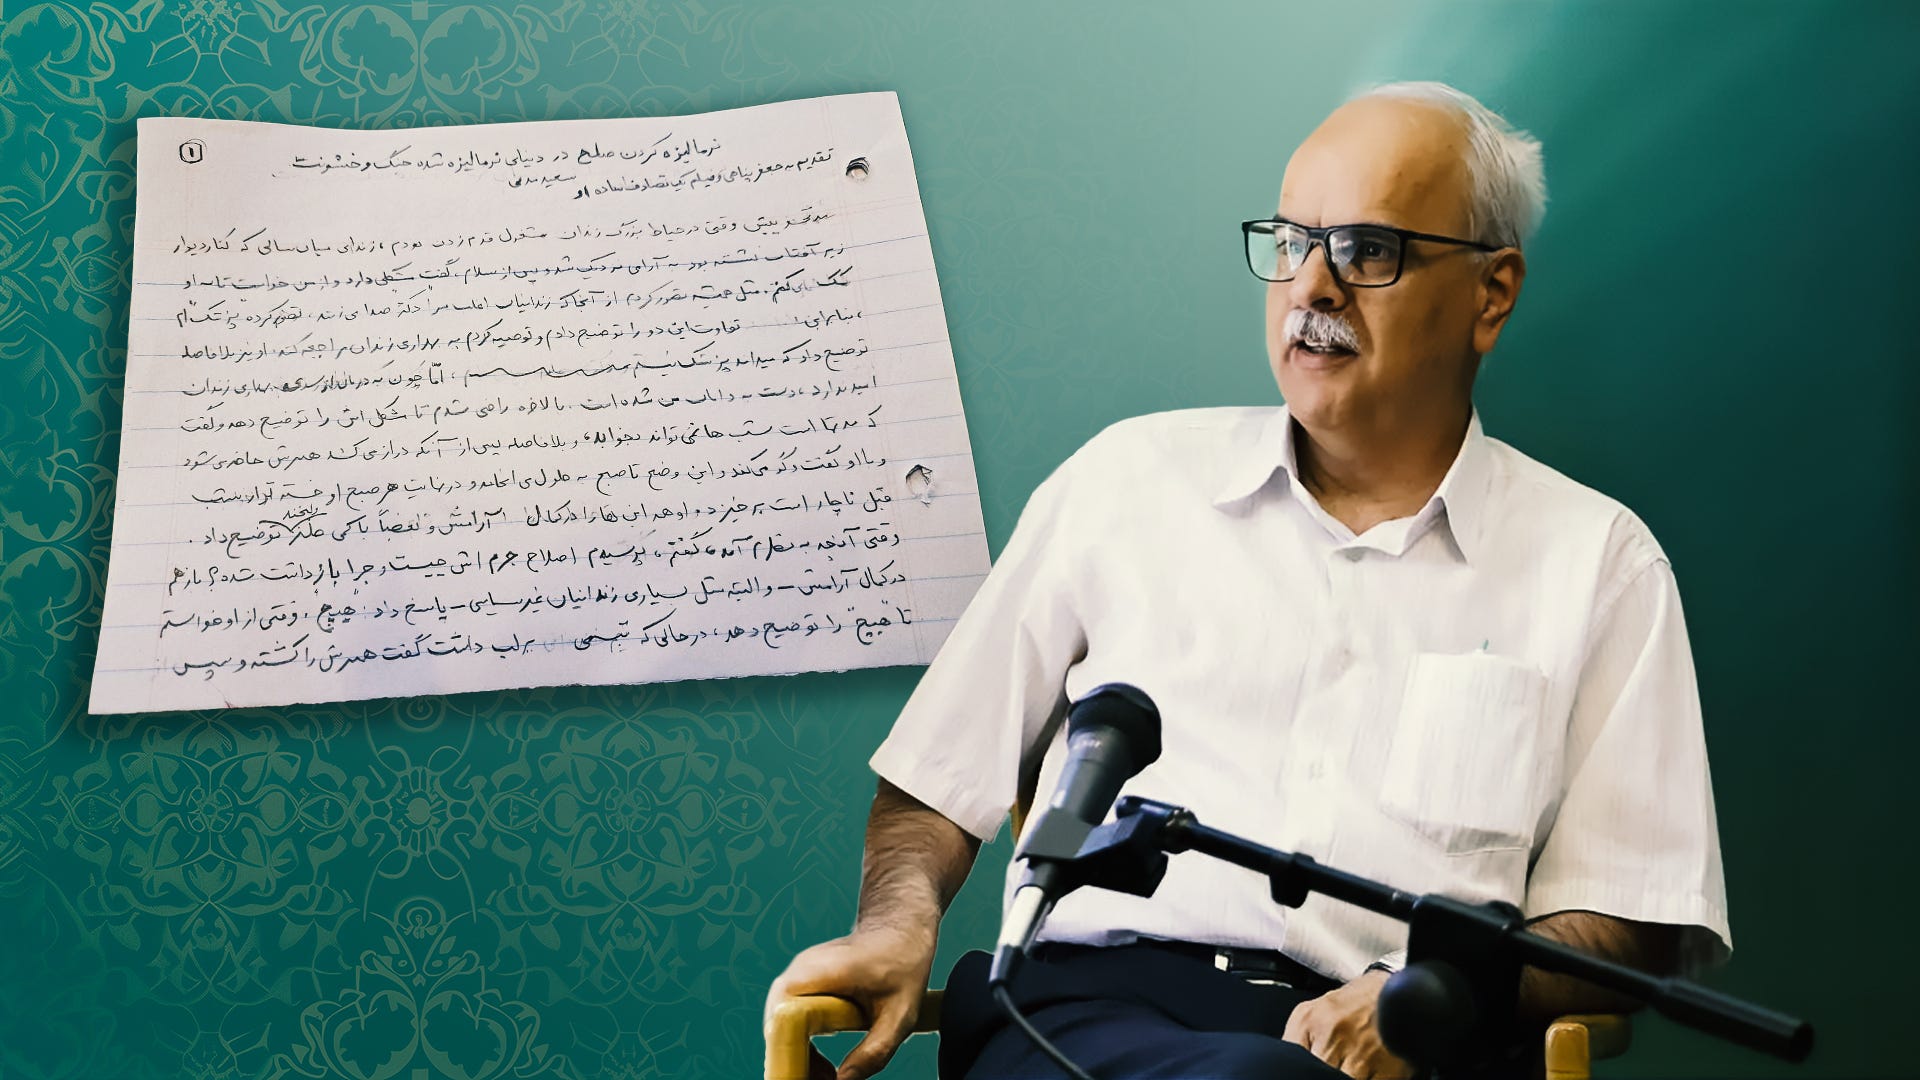 ۱
نرمالیزه کردن صلح در دنیای نرمالیزه شده جنگ و خشونت
سعید مدنی
تقدیم به جعفر پناهی و فیلم یک تصادف ساده او
پیش وقتی در حیاط بزرگ زندان مشغول قدم زدن بودم، زندانی میان سالی که کنار دیوار
زیر آفتاب نشسته بود به آرامی نزدیک شد و پس از سلام، گفت مشکلی دارد و از من خواست تا به او
کمک کنم. مثل همیشه تصور کردم از آنجا که زندانیان اغلب مرا دکتر صدا می زنند، تصور کرده پزشک ام
، بنابراین تفاوت این دو را توضیح دادم و توصیه کردم به بهداری زندان مراجعه کند. او نیز بلافاصله
توضیح داد که میداند پزشک نیستم، امّا چون به درمان بهداری زندان
امید ندارد، دست به دامان من شده است. بالاخره راضی شدم تا مشکل اش را توضیح دهد و گفت
که مدتها است شب ها نمی تواند بخوابد، و بلافاصله پس از آنکه دراز می کشد همسرش حاضر می شود
و با او گفت و گو می کند و این وضع تا صبح به طول می انجامد و در نهایت هر صبح او خسته تر از شب
قبل ناچار است برخیزد و او همه این ها را در کمال آرامش و بعضاً با کمی لبخند توضیح داد.
وقتی آنچه به نظرم آمد، گفتم، پرسیدم اصلاح جرم اش چیست و چرا بازداشت شده؟ بازهم
در کمال آرامش - و البته مثل بسیاری زندانیان غیرسیاسی - پاسخ داد: هیچ. وقتی از او خواستم
تا "هیچ" را توضیح دهد، در حالی که تبسمی بر لب داشت گفت همسرش را کشته و سپس